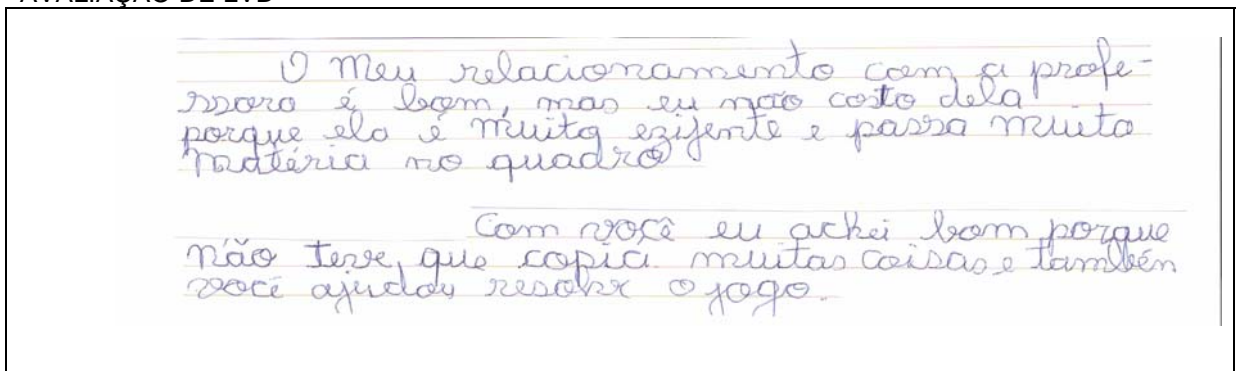 AVALIAÇÃO DE EVD
O Meu relacionamento com a profe-
ssora é bom, mas eu não costo dela
porque ela é muita ezijente e passa muita
matéria no quadro
Com você eu achei bom porque
não teve que copia muitas coisas e também
você ajudou resolver o jogo.